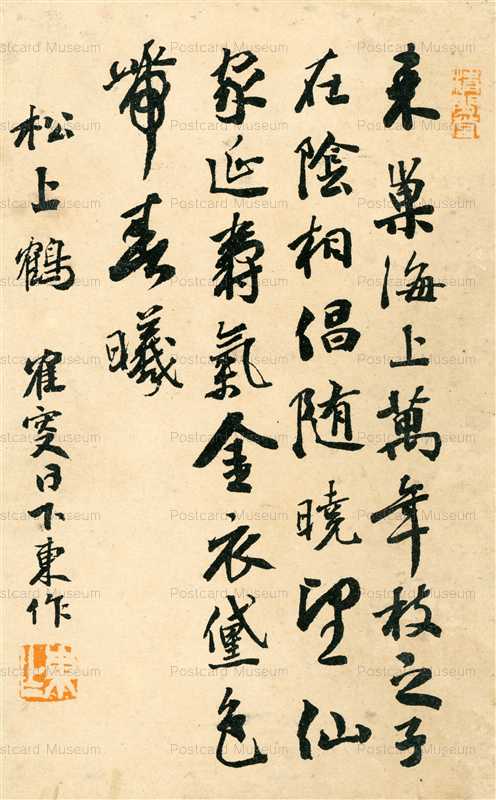 来巣海上萬年枝之子
在陰相倡随曉望仙
家延壽氣金衣黛色
帯春曦
松上鶴
隺叟日下東作
Postcard Museum